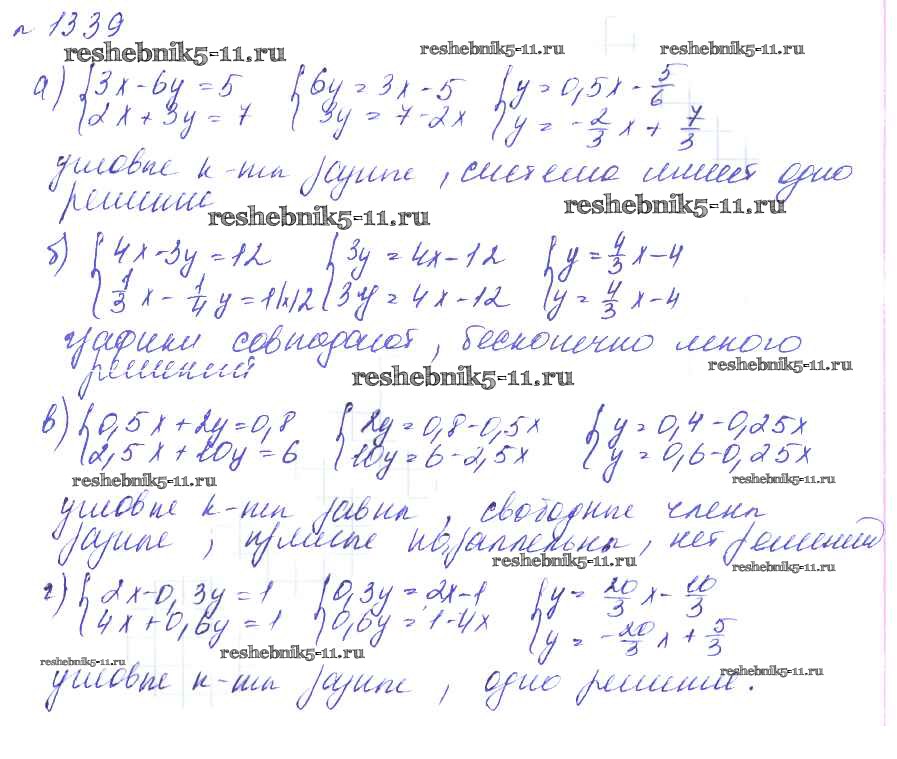 № 1339
reshebnik5-11.ru reshebnik5-11.ru reshebnik5-11.ru
а) {3x - 6y = 5 {6y = 3x - 5 {y = 0,5x - 5/6
2x + 3y = 7 3y = 7 - 2x y = - 2/3 x + 7/3
угловые к-ты разные, система имеет одно
решение
reshebnik5-11.ru reshebnik5-11.ru
б) {4x - 3y = 12 {3y = 4x - 12 {y = 4/3 x - 4
1/3 x - 1/4 y = 1 |x12 3y = 4x - 12 y = 4/3 x - 4
графики совподают, бесконечно много
решений
reshebnik5-11.ru reshebnik5-11.ru
в) {0,5x + 2y = 0,8 {2y = 0,8 - 0,5x {y = 0,4 - 0,25x
2,5x + 10y = 6 10y = 6 - 2,5x y = 0,6 - 0,25x
reshebnik5-11.ru reshebnik5-11.ru
угловые к-ты равны, свободные члены
разные, прямые параллельны, нет решений
reshebnik5-11.ru reshebnik5-11.ru
г) {2x - 0,3y = 1 {0,3y = 2x - 1 {y = 20/3 x - 10/3
4x + 0,6y = 1 0,6y = 1 - 4x y = - 20/3 x + 5/3
reshebnik5-11.ru reshebnik5-11.ru reshebnik5-11.ru
угловые к-ты разные, одно решение.